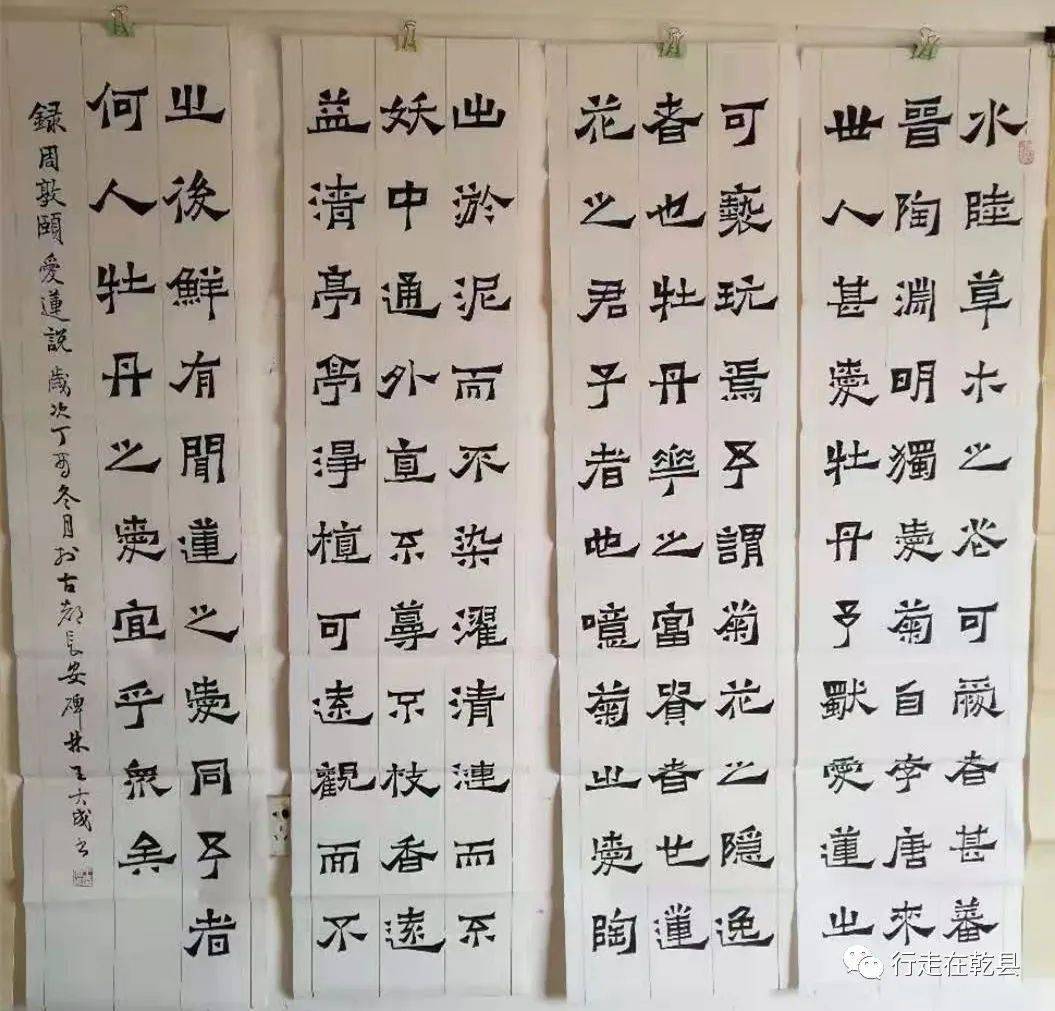 水陸草木之花可愛者甚蕃
晉陶淵明獨愛菊自李唐來
世人甚愛牡丹予獨愛蓮之
可褻玩焉予謂菊花之隱逸
者也牡丹華之富貴者也蓮
花之君子者也噫菊之愛陶
出淤泥而不染濯清漣而不
妖中通外直不蔓不枝香遠
益清亭亭淨植可遠觀而不
之後鮮有聞蓮之愛同予者
何人牡丹之愛宜乎衆矣
録周敦頤愛蓮説歲次丁酉冬月於古都長安碑林王大成書
行走在乾县